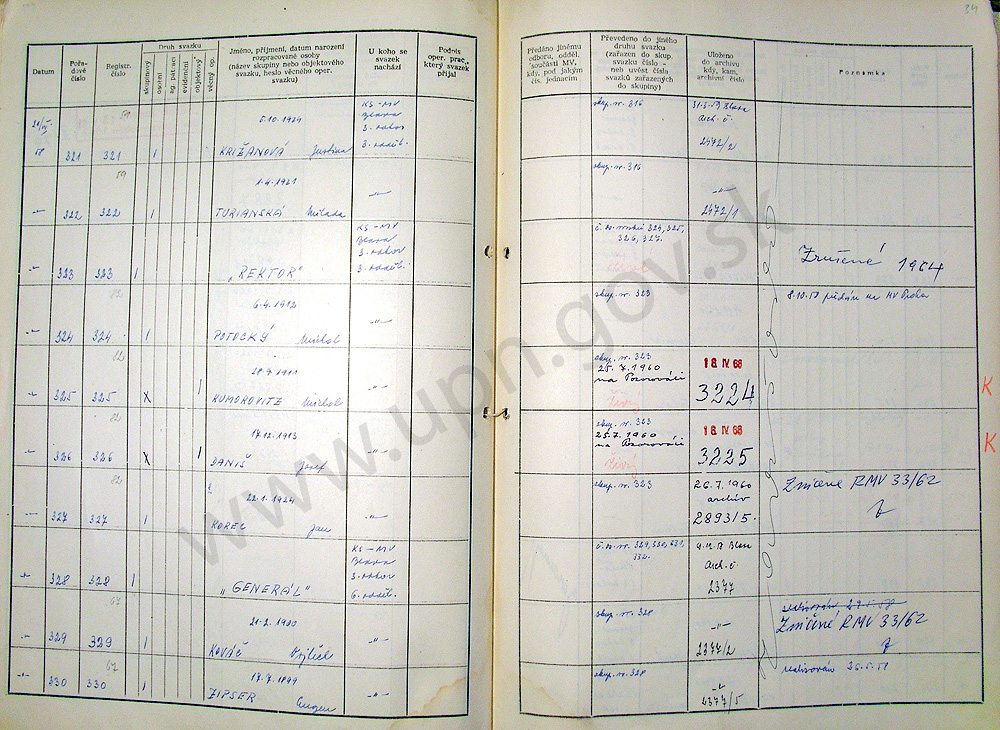 34
Datum
Pořa-
dové
číslo
Registr.
číslo
Druh svazku
skupinový
osobní
ag. pátrací
evidenční
objektový
věcný op.
Jméno, příjmení, datum narození
rozpracované osoby
(název skupiny nebo objektového
svazku, heslo věcného oper.
svazku)
U koho se
svazek
nachází
Podpis
oper. prac.,
který svazek
přijal
Předáno jinému
odboru, odděl.
součásti MV,
kdy, pod jakým
čís. jednacím
Převedeno do jiného
druhu svazku
(zařazen do skup.
svazku číslo —
neb uvést čísla
svazků zařazených
do skupiny)
Uloženo
do archivu
kdy, kam,
archivní číslo
Poznamka
59
5.10.1924
KS-MV
Blava
3. odbor
3. odděl.
321 321 1 KRIŽANOVÁ Justina
skup. nr. 316
31.3.59 Blava
Arch. č.
2472/2
59
1.4.1921
322 322 1 TURIANSKÁ Milada
skup. nr. 316
2472/1
KS-MV
Blava
3. odbor
3. odděl.
323 323 1 "REKTOR"
324, 325,
326, 327.
Zrušené 1964
82
6.4.1912
324 324 1 POTOCKÝ Michal
skup. nr. 323
8.10.58 předán na MV Praha
82
1911
325 325 X 1 KUMOROVITZ Michal
skup. nr. 323
25.7.1960
na Pozorováci
Živý
18 IV 68
3224
K
82
17.12.1913
326 326 X 1 DANIŠ Jozef
skup. nr. 323
25.7.1960
na Pozorováci
Živý
18 IV 68
3225
K
82
22.1.1924
327 327 1 KOREC Jan
skup. nr. 323
26.7.1960
archív
2893/5.
Zničené RMV 33/62
KS-MV
Blava
3. odbor
6. odděl.
328 328 1 "GENERÁL"
329, 330, 331,
332.
Arch. č.
2377
67
21.2.1900
329 329 1 KOVÁČ Vojtech
skup. nr. 328
2377/2
Zničené RMV 33/62
67
1899
330 330 1 ZIPSER Eugen
skup. nr. 328
2377/5
realizován 26.5.58
www.upn.gov.sk